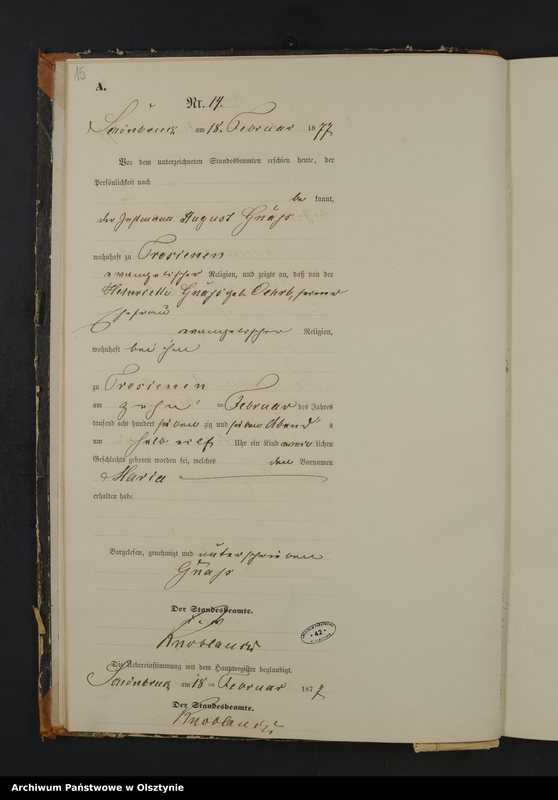 15
A.
Nr. 14.
Schönbruch am 18. Februar 1877
Vor dem unterzeichneten Standesbeamten erschien heute, der
Persönlichkeit nach
be kannt,
der Instmann August
wohnhaft zu Trosienen
evangelischer Religion, und zeigte an, daß von der
Henriette geb. seiner
Ehefrau
evangelischer Religion,
wohnhaft bei ihm
zu Trosienen
am zehn ten Februar des Jahres
tausend acht hundert sieben zig und sieben Abends
um halb eilf Uhr ein Kind lichen
Geschlechts geboren worden sei, welches den Vornamen
Maria
erhalten habe
Vorgelesen, genehmigt und unterschrieben
Der Standesbeamte.
Die Uebereinstimmung mit dem Hauptregister beglaubigt.
Schönbruch am 18 ten Februar 1877
Der Standesbeamte.
42
Archiwum Państwowe w Olsztynie